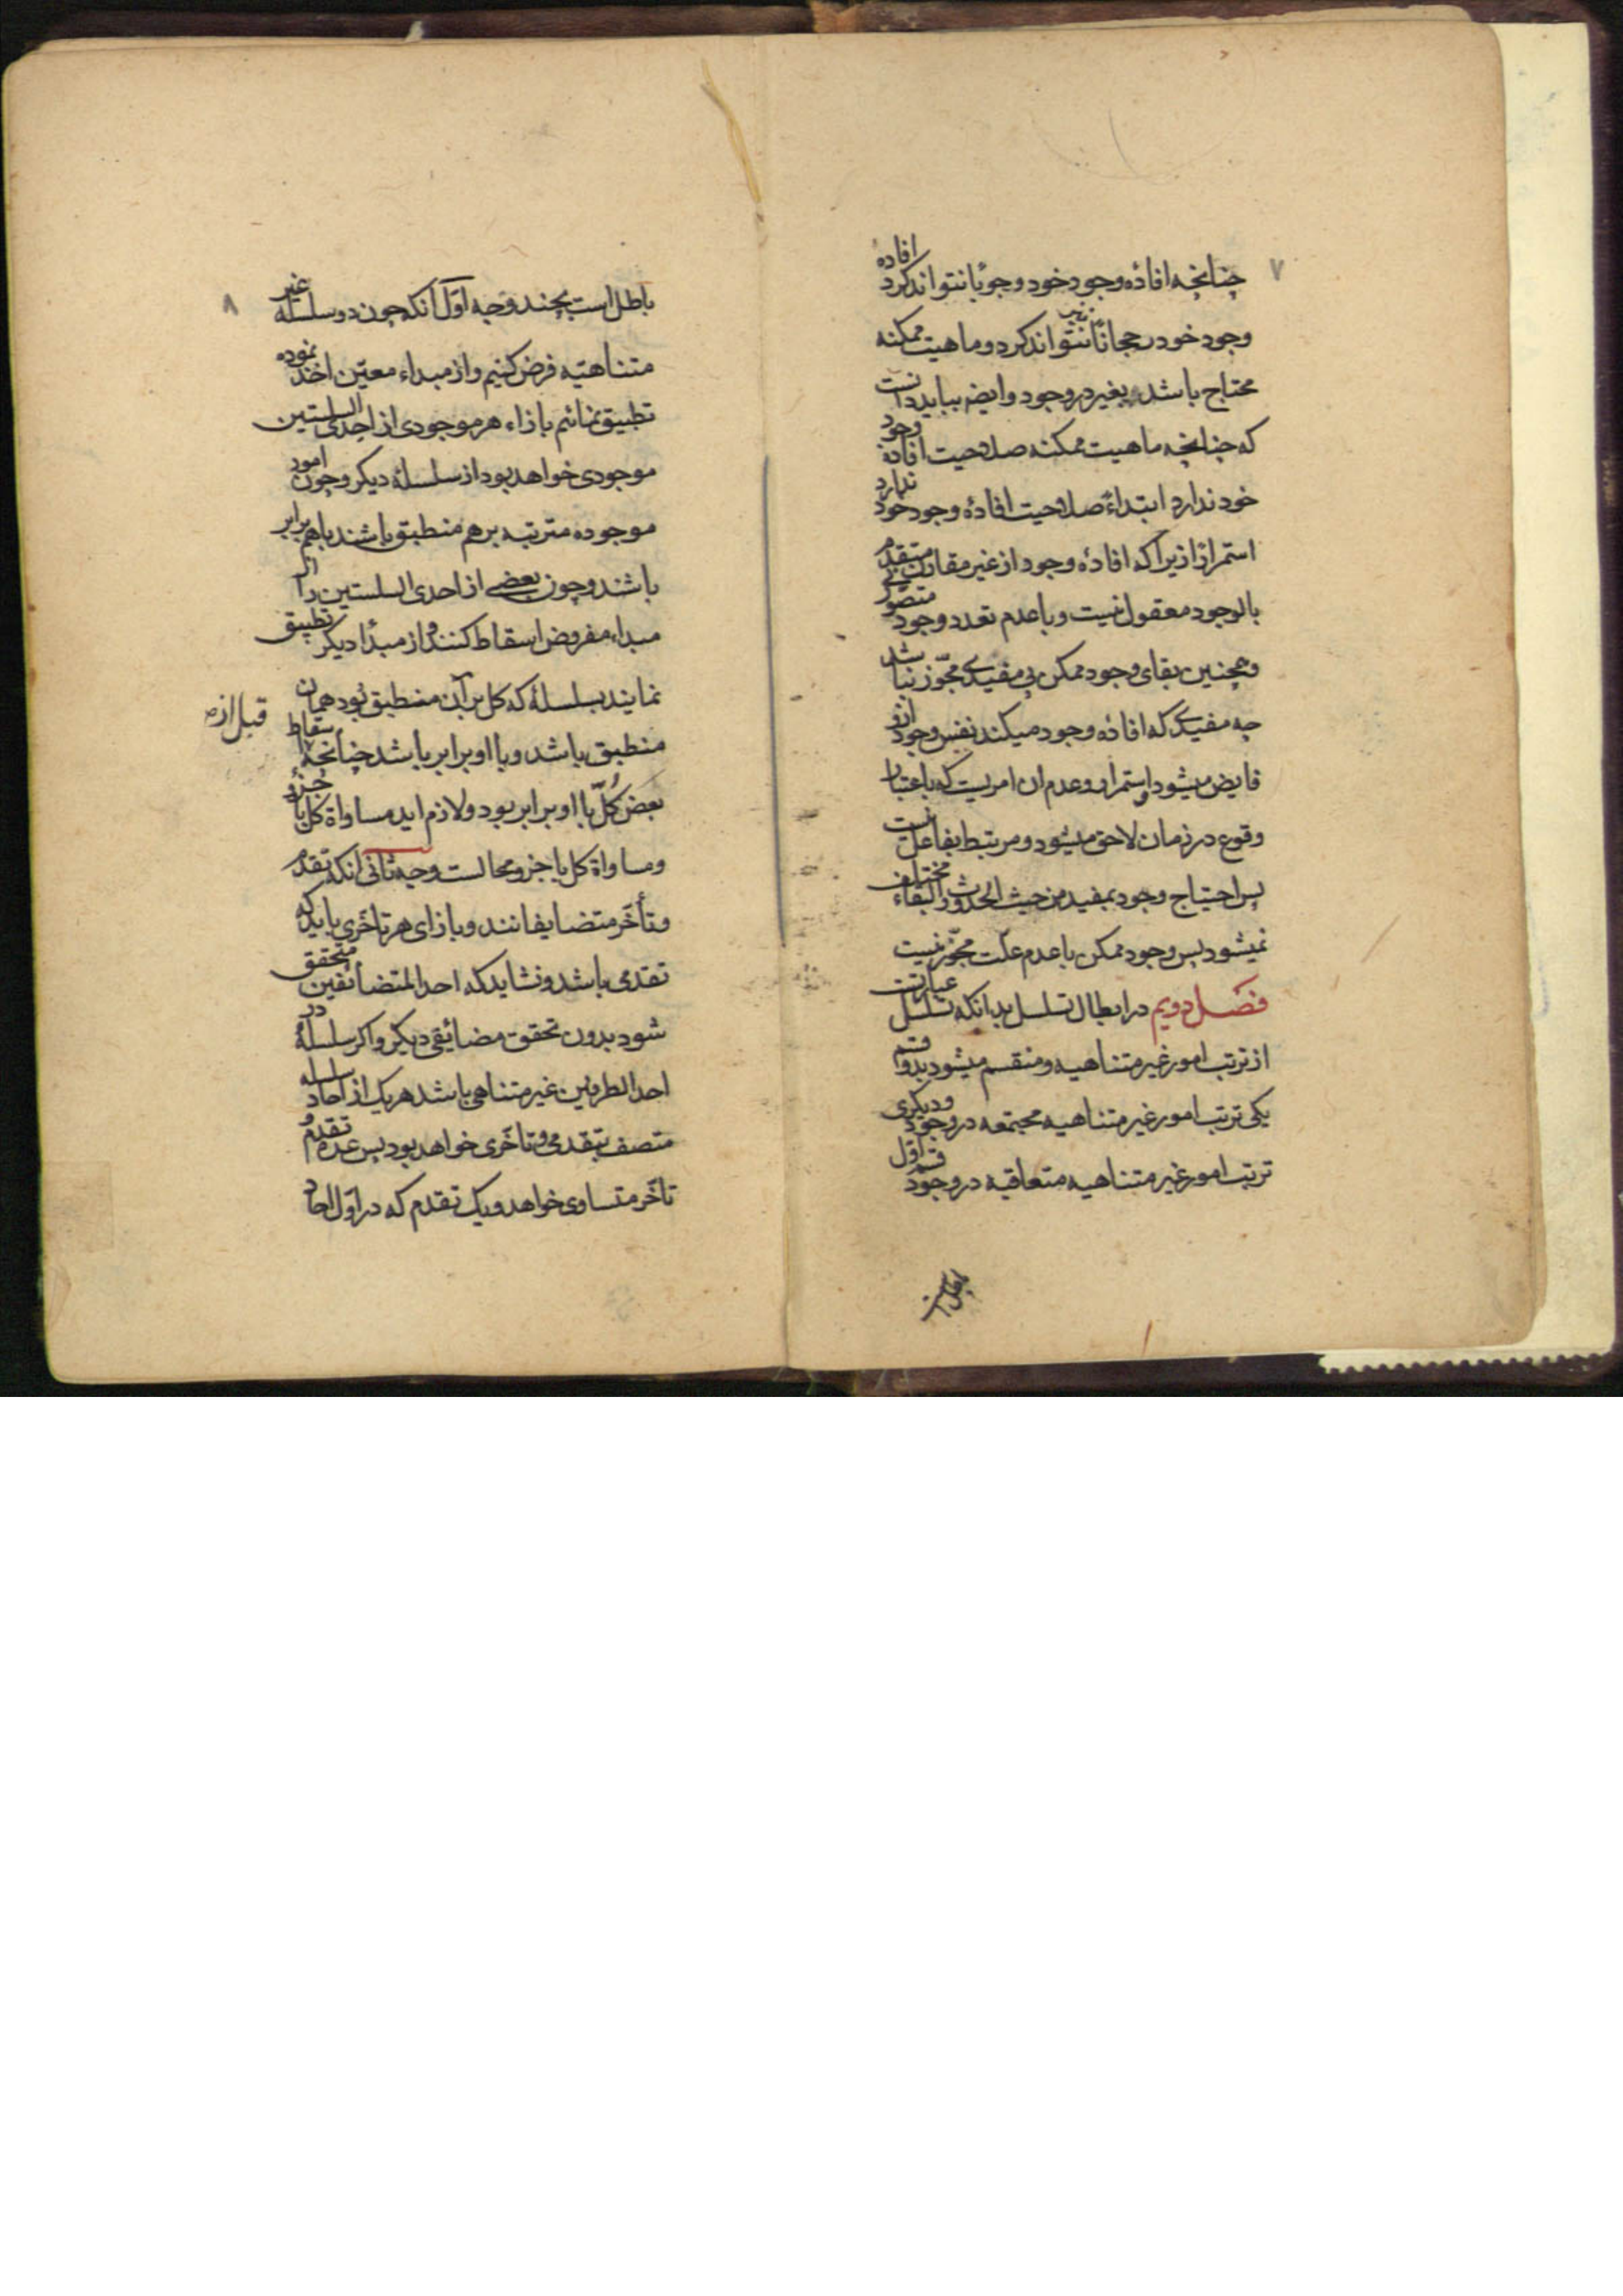 ۷
چنانچه افادهٔ وجود خود وجوبًا نتواند کرد افادهٔ
وجود خود رجحانًا نیز نتواند کرد و ماهیت ممکنه
محتاج باشد بغیر در وجود وایضه بباید دانست
که چنانچه ماهیت ممکنه صلاحیت افادهٔ وجود
خود ندارد ابتداءً صلاحیت افادهٔ وجود خود ندارد
استمرارًا زیرا که افادهٔ وجود از غیر مقارن متقدم
بالوجود معقول نیست و با عدم تعدد وجود متصوّر نی
وهمچنین بقای وجود ممکن بی مفیدی مجوّز نباشد
چه مفیدی که افاده وجود میکند نفس وجود ازو
فایض میشود و استمرار و عدم ان امریست که باعتبار
وقوع در زمان لاحق میشود و مرتبط بفاعل نیست
پس احتیاج وجود بمفید من حیث الحدوث والبقاء مختلف
نمیشود پس وجود ممکن با عدم علّت مجوّز نیست
فصل دویم در ابطال تسلسل بدانکه تسلسل عبارتست
از ترتب امور غیر متناهیه و منقسم میشود بدو قسم
یکی ترتب امور غیر متناهیه مجتمعه در وجود و دیگری
ترتب امور غیر متناهیه متعاقبه در وجود قسم اوّل
باطل است
۸
باطل است بچند وجه اوّل آنکه چون دو سلسله غیر
متناهیه فرض کنیم و از مبداء معیّن اخذ نموده
تطبیق نمائیم بازاء هر موجودی از احدی السلستین
موجودی خواهد بود از سلسلهٔ دیکر و چون امور
موجوده مترتبه بر هم منطبق باشند با هم برابر
باشند و چون بعضی از احدی السلستین را از
مبداء مفروض اسقاط کنند و از مبدأ دیکر تطبیق
نمایند بسلسلهٔ که کل بر آن منطبق بود همان
قبل از
منطبق باشد و با او برابر باشد چنانچه اسقاط
بعض کُلّ با او برابر بود و لازم اید مساواة کل با جزؤ
و مساواة کل با جزو محالست وجه ثانی انکه تقدم
و تأخّر متضایفانند و بازای هر تاخّری باید که
تقدمی باشد و نشاید که احد المتضائفین متحقق
شود بدون تحقق مضائیقی دیکر و اکر سلسلهٔ در
احد الطرفین غیر متناهی باشد هر یک از احاد سلسله
متصف بتقدمی و تاخّری خواهد بود پس عدهٔ تقدم و
تاخّر متساوی خواهد و یک تقدم که در اوّل احاد